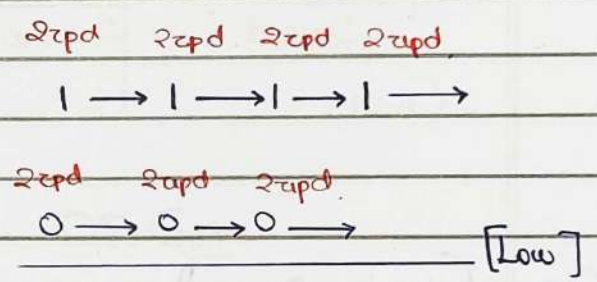 2τpd 2τpd 2τpd 2τpd
1 → 1 → 1 → 1 →
2τpd 2τpd 2τpd.
0 → 0 → 0 →
[Low]